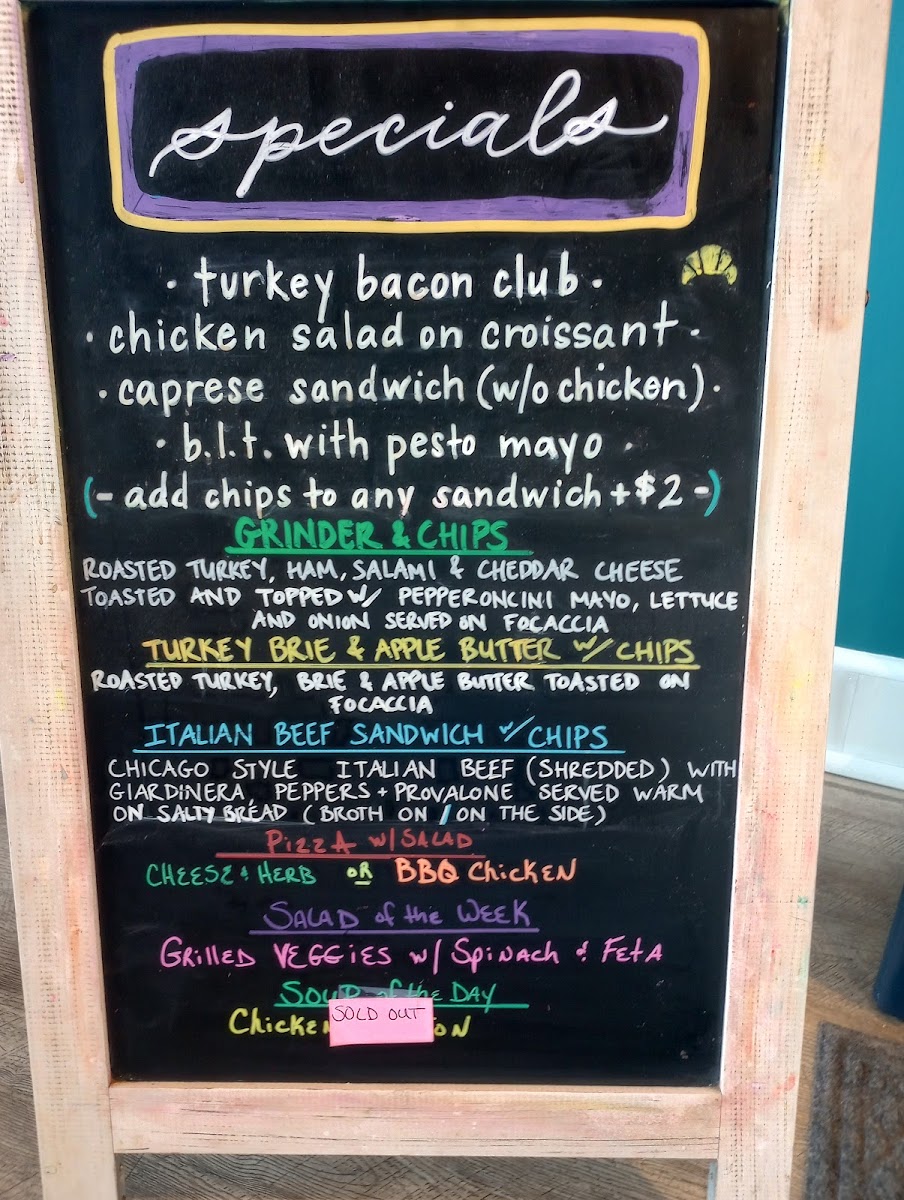 specials
· turkey bacon club ·
· chicken salad on croissant ·
· caprese sandwich (w/o chicken) ·
· b.l.t. with pesto mayo ·
(- add chips to any sandwich +$2 -)
GRINDER & CHIPS
ROASTED TURKEY, HAM, SALAMI & CHEDDAR CHEESE
TOASTED AND TOPPED W/ PEPPERONCINI MAYO, LETTUCE
AND ONION SERVED ON FOCACCIA
TURKEY BRIE & APPLE BUTTER W/ CHIPS
ROASTED TURKEY, BRIE & APPLE BUTTER TOASTED ON
FOCACCIA
ITALIAN BEEF SANDWICH W/ CHIPS
CHICAGO STYLE ITALIAN BEEF (SHREDDED) WITH
GIARDINERA PEPPERS + PROVALONE SERVED WARM
ON SALTY BREAD (BROTH ON / ON THE SIDE)
PIZZA W/ SALAD
CHEESE & HERB OR BBQ CHICKEN
SALAD of the WEEK
GRILLED VEGGIES w/ Spinach & FETA
SOUP of the DAY
Chicken
SOLD OUT